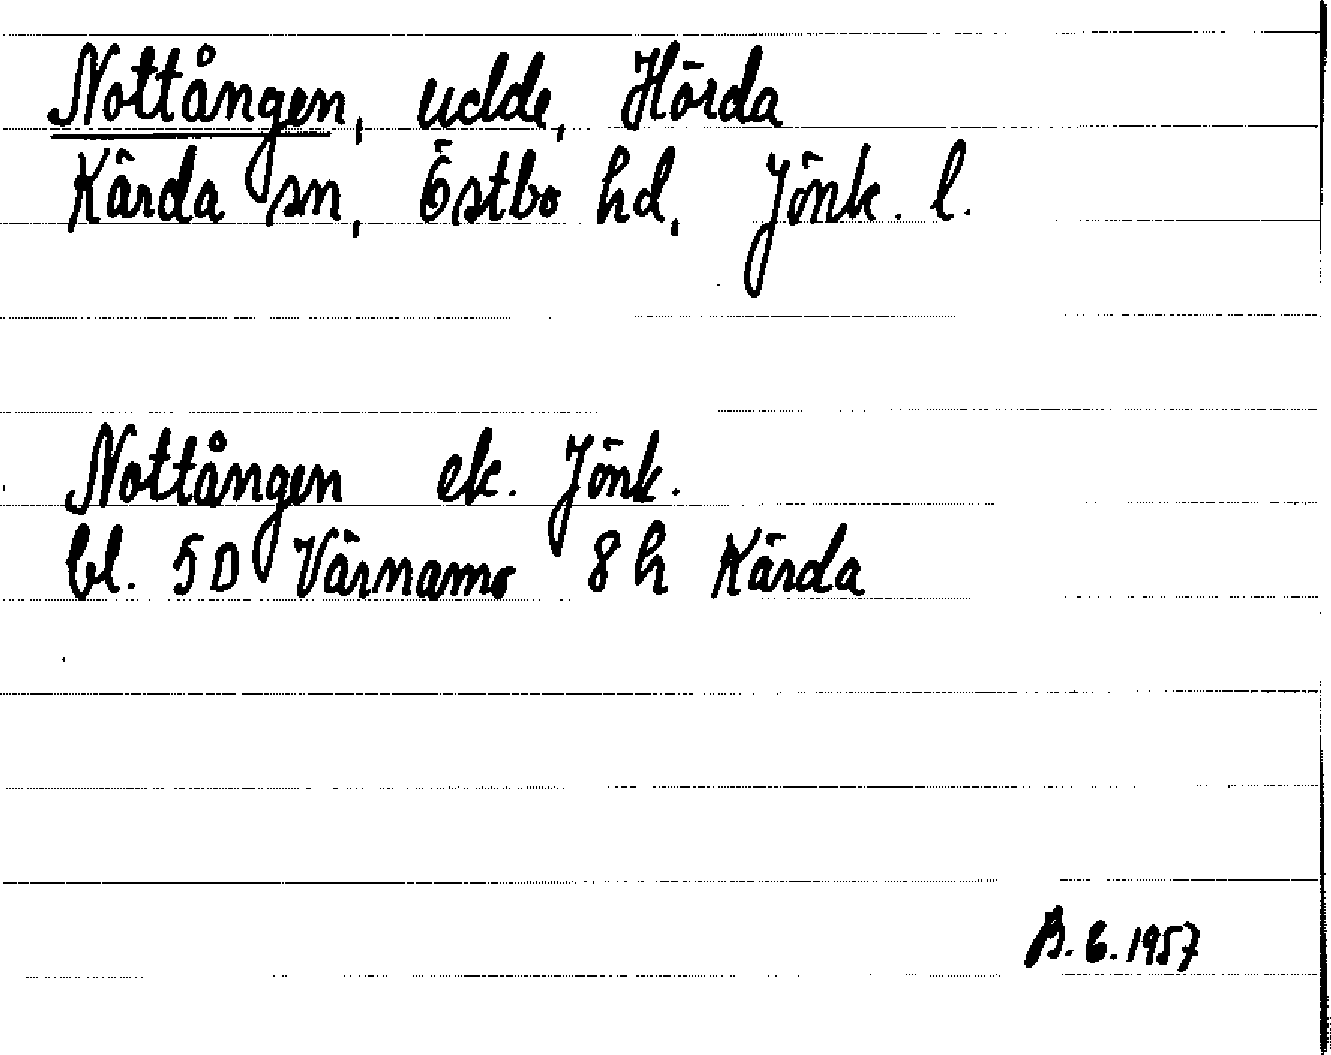 Nottången, udde, Hörda
Kärda sn, Östbo hd, Jönk. l.
Nottången ek. Jönk.
bl. 5D Värnamo 8h Kärda
B.E. 1957